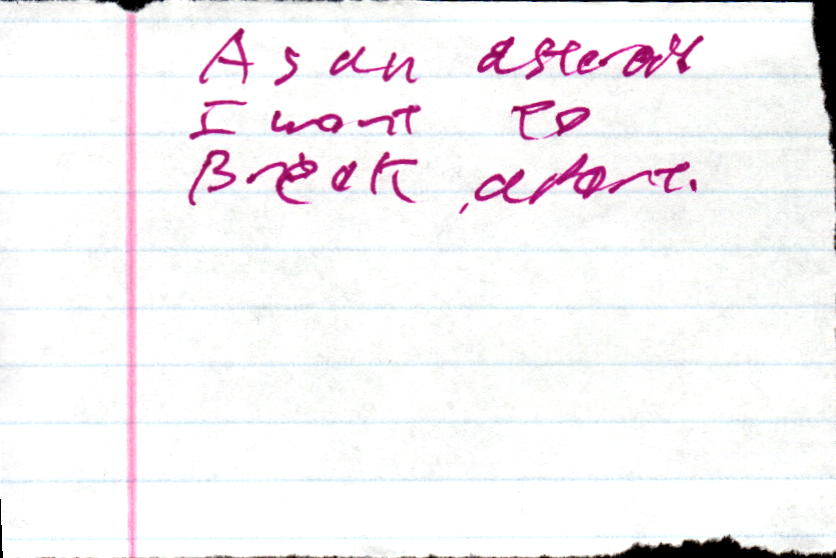 As an asteroid
I want to
Break apart.